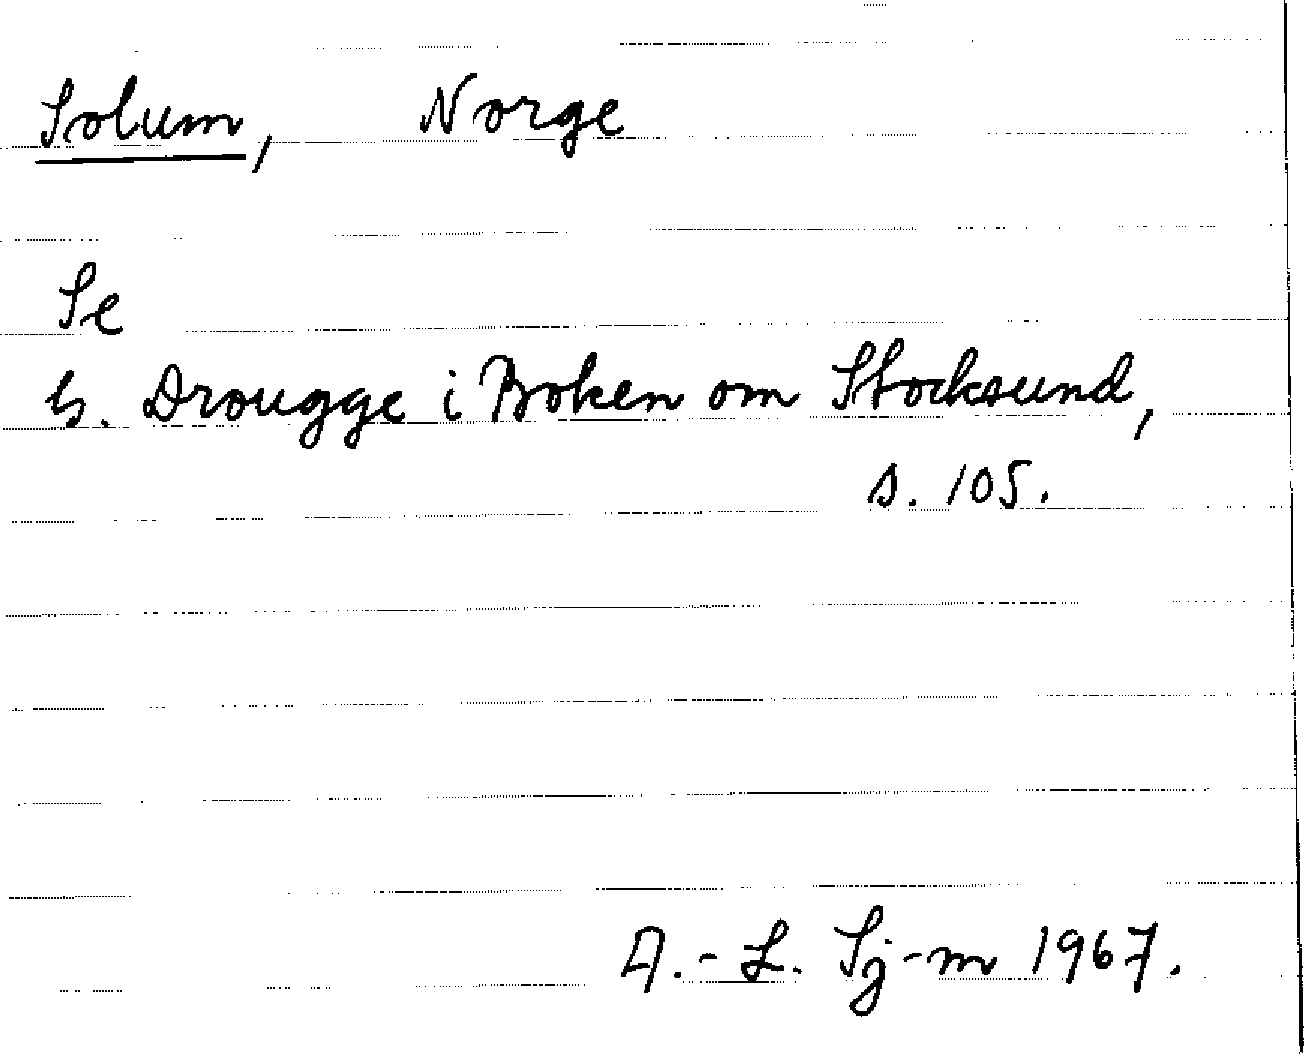 Solum, Norge
Se
G. Drougge i Boken om Stocksund,
s. 105.
A.-L. Sj-m 1967.